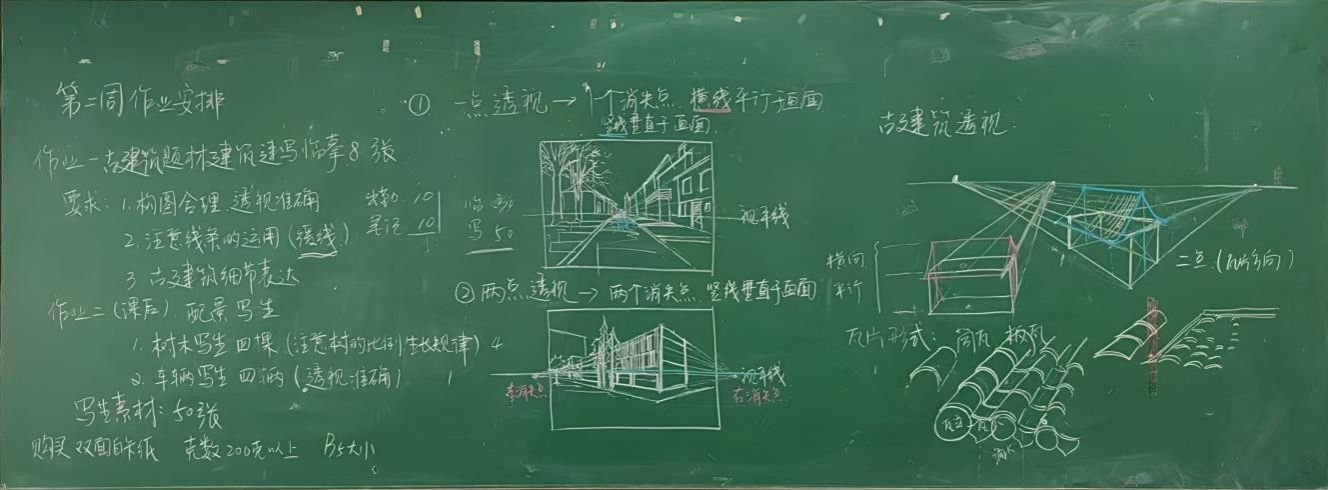 第二周作业安排
作业一 古建筑题材建筑速写临摹8张
要求：1.构图合理、透视准确
2.注意线条的运用（缓线）
3 古建筑细节表达
作业二（课后）.配景写生
1.树木写生 四棵（注意树的比例,生长规律） 4
2.车辆写生 四辆（透视准确） 1
写生素材：50张
购买双面白卡纸 克数200克以上 B5大小
10
笔记 10
写 50
① 一点透视→1个消失点.横线平行于画面
竖线垂直于画面
视平线
②两点透视→两个消失点.竖线垂直于画面
视平线
左消失点
右消失点
古建筑透视：
横向
平行
二点.(瓦片方向)
瓦片形式：筒瓦 板瓦